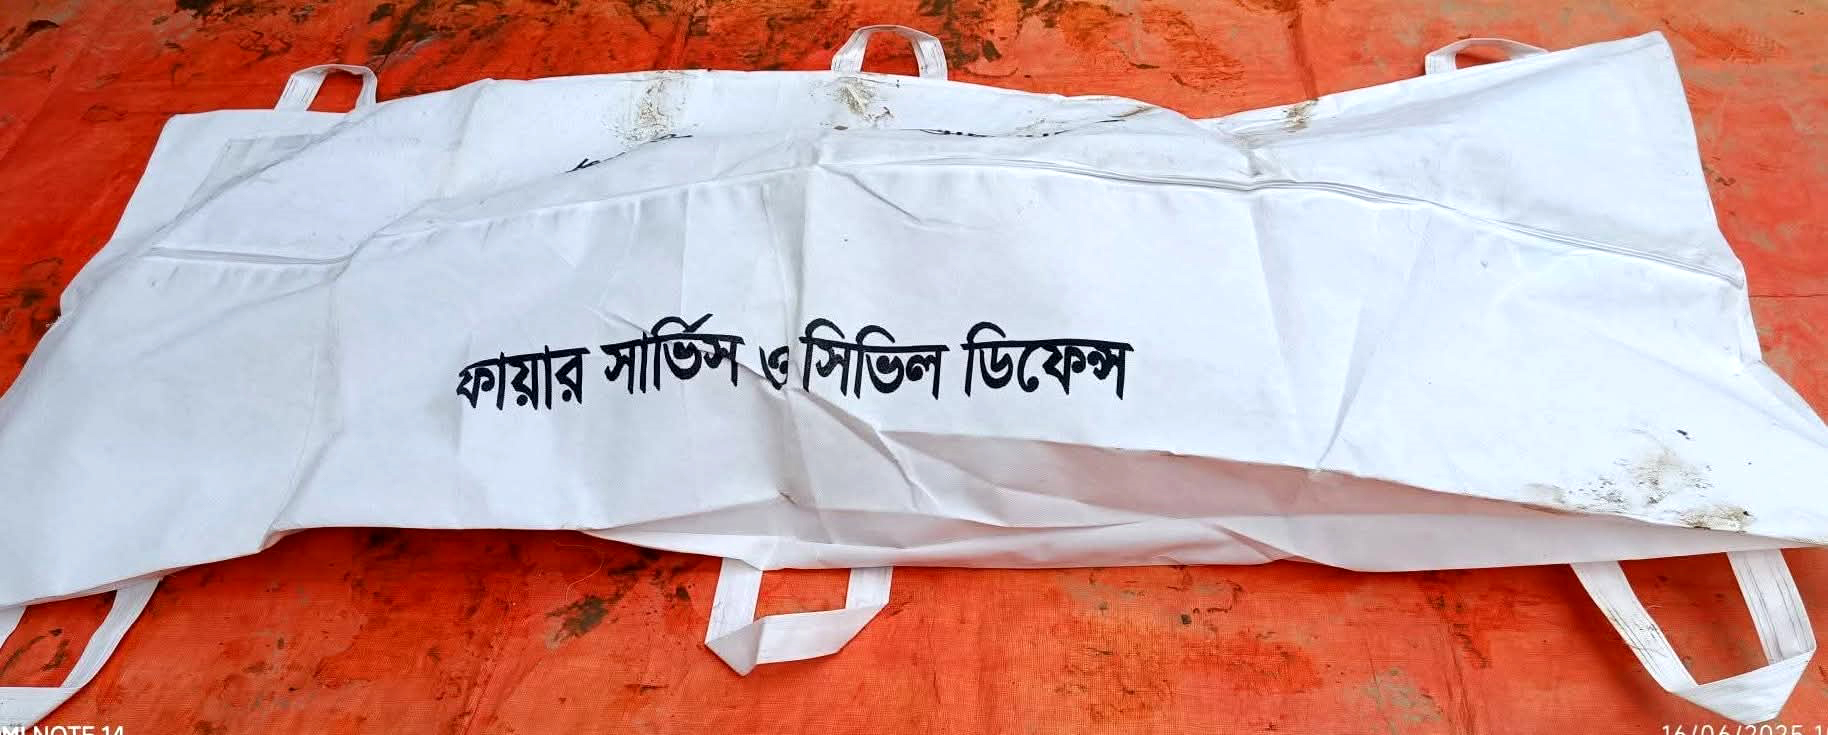 ফায়ার সার্ভিস ও সিভিল ডিফেন্স
MI NOTE 14
16/06/2025